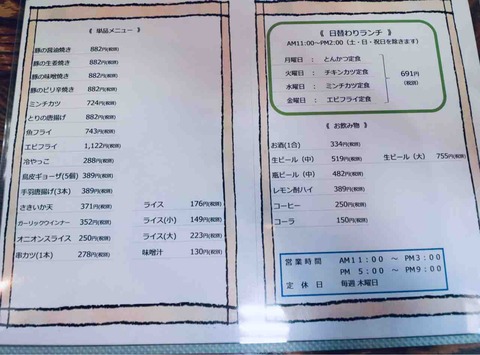 《 単品メニュー 》
豚の醤油焼き 882円(税別)
豚の生姜焼き 882円(税別)
豚の味噌焼き 882円(税別)
豚のピリ辛焼き 882円(税別)
ミンチカツ 724円(税別)
とりの唐揚げ 882円(税別)
魚フライ 743円(税別)
エビフライ 1,122円(税別)
冷やっこ 288円(税別)
鳥皮ギョーザ(5個) 389円(税別)
手羽唐揚げ(3本) 389円(税別)
さきいか天 371円(税別) ライス 176円(税別)
ガーリックウインナー 352円(税別) ライス(小) 149円(税別)
オニオンスライス 250円(税別) ライス(大) 223円(税別)
串カツ(1本) 278円(税別) 味噌汁 130円(税別)
《 日替わりランチ 》
AM11:00～PM2:00（土・日・祝日を除きます）
月曜日 ： とんかつ定食
火曜日 ： チキンカツ定食
水曜日 ： ミンチカツ定食
金曜日 ： エビフライ定食
691円
(税別)
《 お飲み物 》
お酒(1合) 334円(税別)
生ビール（中） 519円(税別) 生ビール（大） 755円(税別)
瓶ビール（中） 482円(税別)
レモン酎ハイ 389円(税別)
コーヒー 250円(税別)
コーラ 150円(税別)
営業時間 AM11：00 ～ PM3：00
PM 5：00 ～ PM9：00
定休日 毎週 木曜日